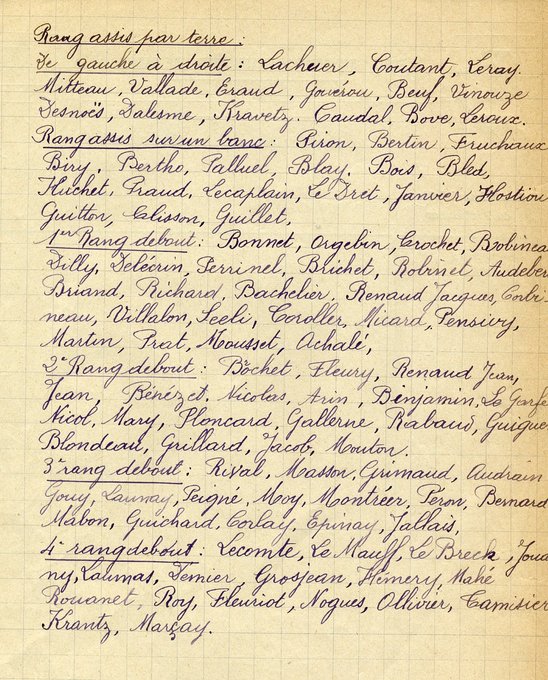 Rang assis par terre :
De gauche à droite : Lacheuer, Coutant, Leray.
Mitteau, Vallade, Eraud, Gouérou, Beuf, Vinouze
Desnoës, Dalesme, Kravetz. Caudal, Bove, Leroux.
Rang assis sur un banc : Piron, Bertin, Fruchaux
Biry, Bertho, Palluel, Blay, Bois, Bled,
Huchet, Fraud, Lecaplain, Le Dret, Janvier, Hostiou
Guitton, Clisson, Guillet,
1er Rang debout : Bonnet, Orgebin, Crochet, Bobineau
Dilly, Delécrin, Perrinel, Brichet, Robinet, Audeber
Briand, Richard, Bachelier, Renaud Jacques, Corbi-
neau, Villalon, Seeli, Coroller, Micard, Pensivy,
Martin, Prat, Mousset, Achalé,
2e Rang debout : Bochet, Fleury, Renaud Jean,
Jean, Bénézet, Nicolas, Arin, Benjamin, La Garfe
Nicol, Mary, Ploncard, Gallerne, Rabaud, Guigue
Blondeau, Grillard, Jacob, Mouton.
3e rang debout : Rival, Masson, Grimaud, Audrain
Gouy, Launay, Peigne, Moy, Montréer, Péron, Bernard
Mabon, Guichard, Corlay, Epinay, Jallais,
4e rang debout : Lecomte, Le Mauff, Le Breck, Joua
ny, Laumas, Demier, Grosjean, Himery, Mahé
Rouanet, Roy, Fleuriot, Nogues, Ollivier, Camisier
Krantz, Marçay.